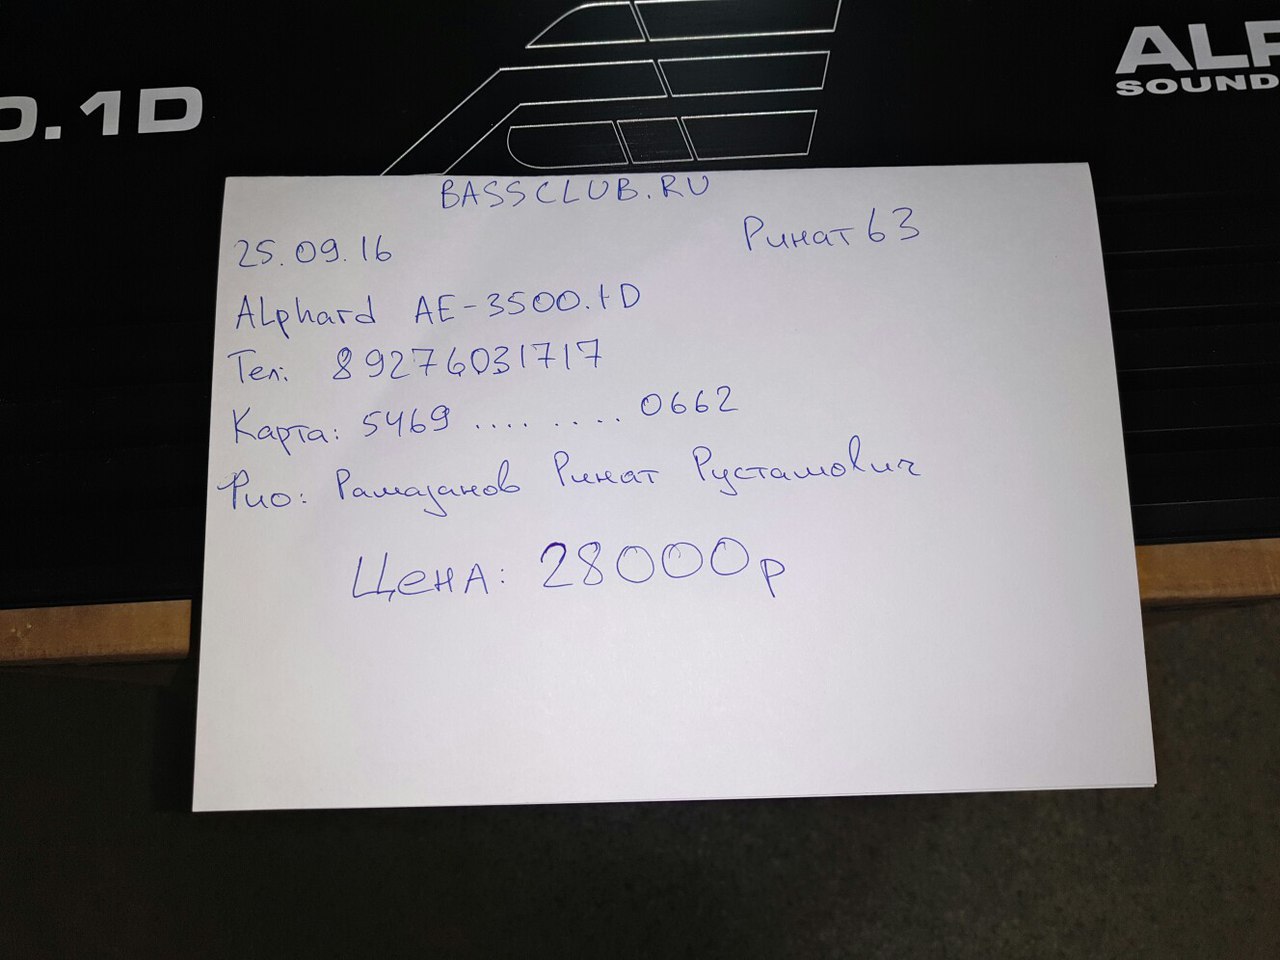 0.1D
ALP
SOUND
BASSCLUB.RU
25.09.16
Ринат63
Alphard AE-3500.1D
Тел: 89276031717
Карта: 5469 .... .... 0662
Фио: Рамазанов Ринат Рустамович
Цена: 28000р